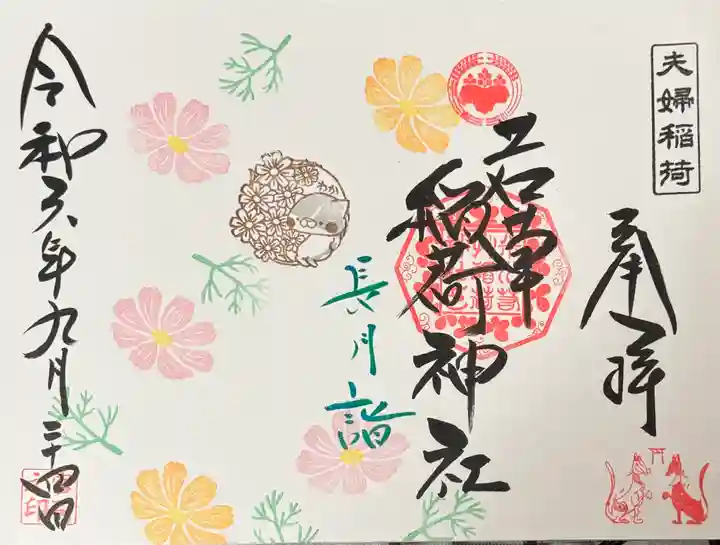 夫婦稲荷
奉拝
若草
稲荷神社
長月詣
わか
令和六年九月二十四日